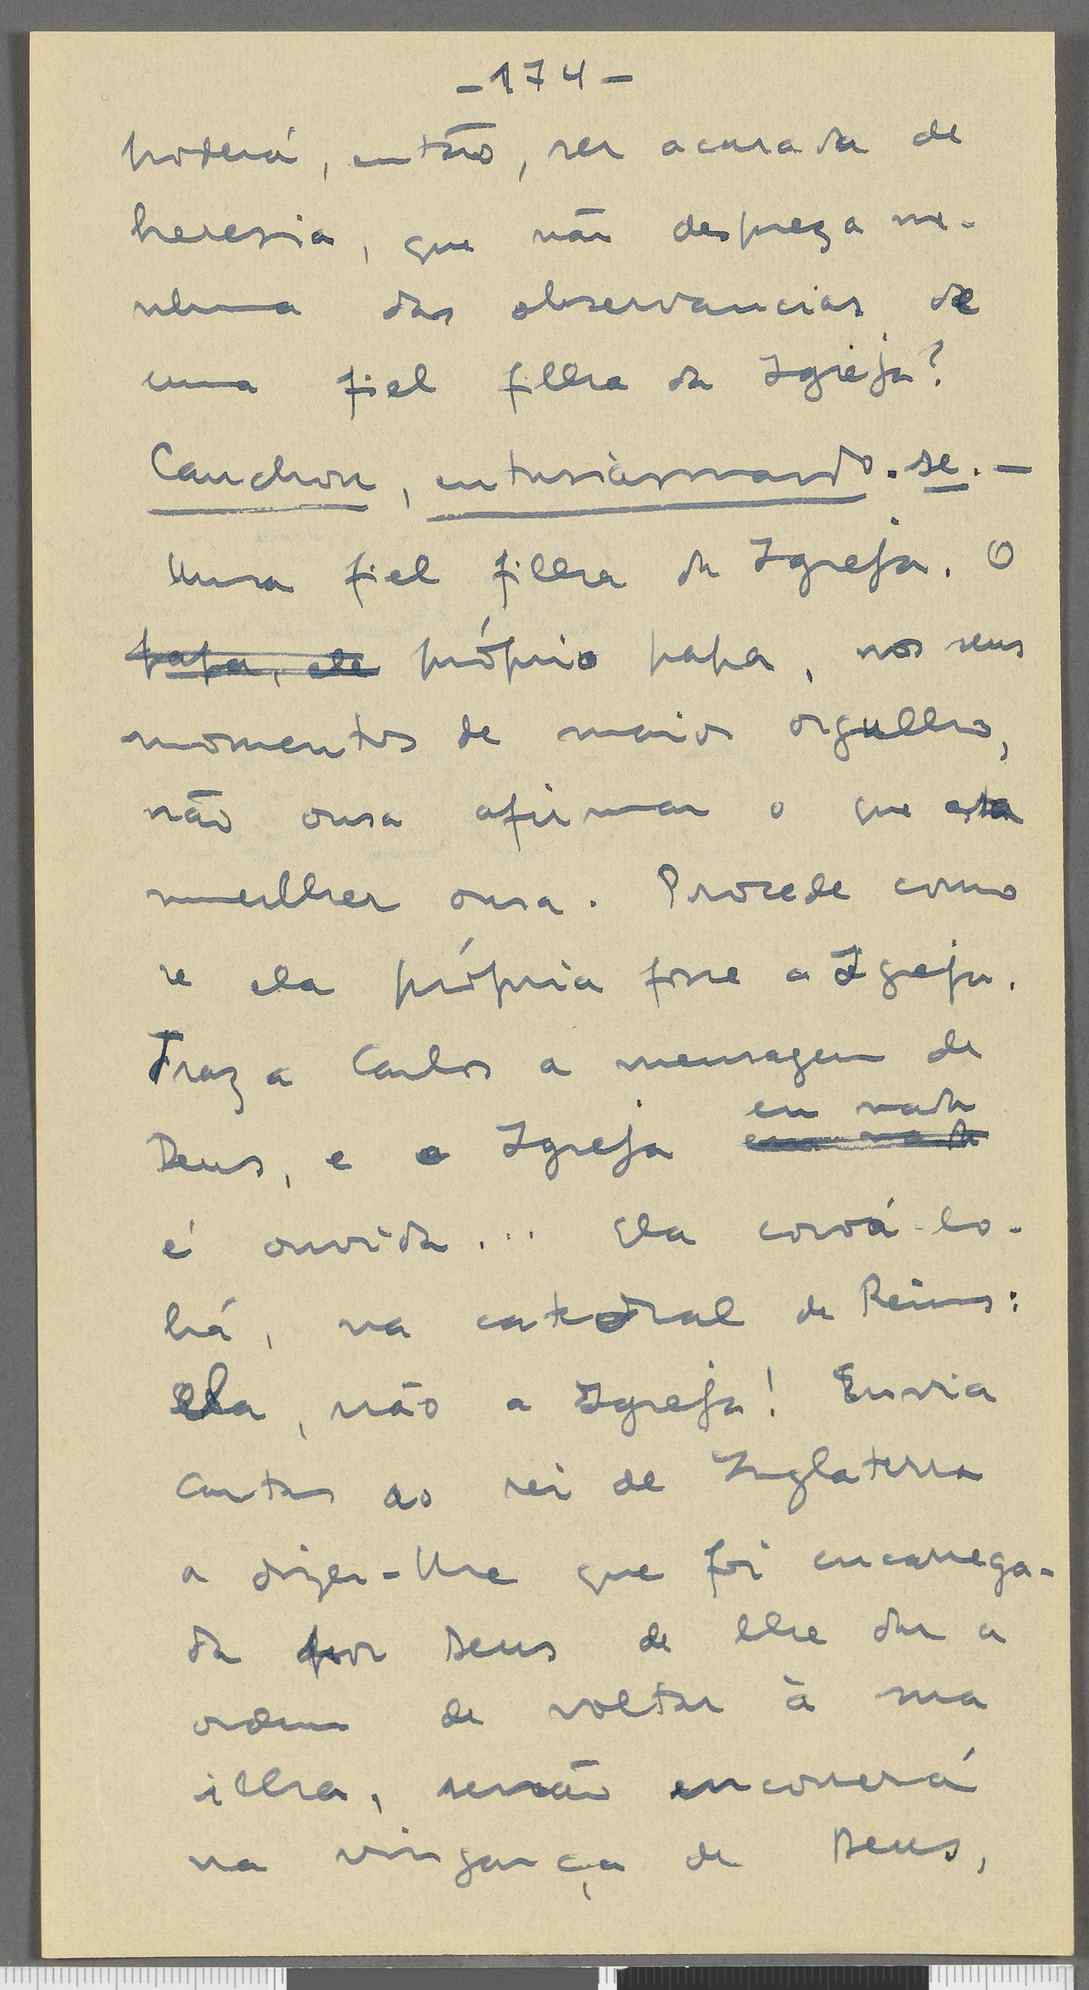 -174-
poderá, então, ser acusada de
heresia, que não despreza ne-
nhuma das observancias de
uma fiel filha da Igreja?
Cauchon, entusiasmando-se. -
Uma fiel filha da Igreja. O
papa, ele próprio papa, nos seus
momentos de maior orgulho,
não ousa afirmar o que esta
mulher ousa. Procede como
se ela própria fosse a Igreja.
Traz a Carlos a mensagem de
em nada
Deus, e a Igreja em nada
é ouvida... Ela coroá-lo-
há, na catedral de Reims:
ela, não a Igreja! Envia
cartas ao rei de Inglaterra
a dizer-lhe que foi encarrega-
da por Deus de lhe dar a
ordem de voltar à sua
ilha, senão encorrerá
na vingança de Deus,